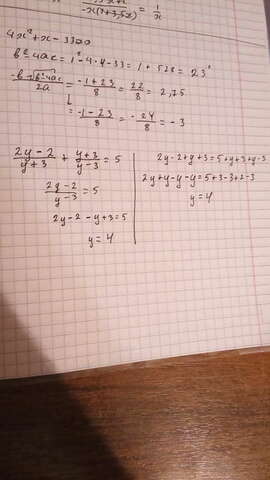 -x(2+3,5x) = 1/x
4x²+x-33=0
b²-4ac = 1²-4·4·-33 = 1+528 = 23²
-b+√b²-4ac / 2a = -1+23 / 8 = 22/8 = 2,75
↓ = -1-23 / 8 = -24/8 = -3
2y-2 / y+3 + y+3 / y-3 = 5
2y-2 / y-3 = 5
2y-2-y+3=5
y=4
2y-2+y+3=5+y+3+y-3
2y+y-y-y=5+3-3+2-3
y=4